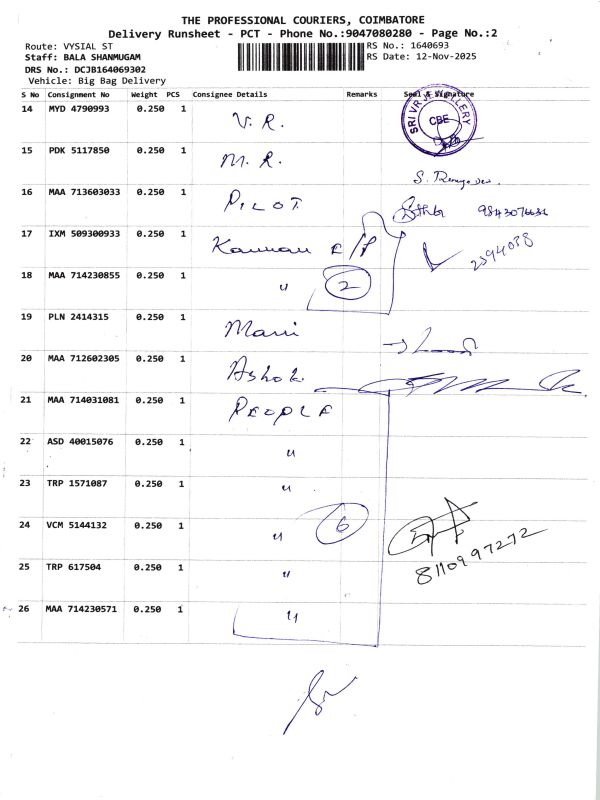 THE PROFESSIONAL COURIERS, COIMBATORE
Delivery Runsheet - PCT - Phone No.:9047080280 - Page No.:2
Route: VYSIAL ST
Staff: BALA SHANMUGAM
DRS No.: DCJB164069302
Vehicle: Big Bag Delivery
RS No.: 1640693
RS Date: 12-Nov-2025
S No Consignment No Weight PCS Consignee Details Remarks Seal & Signature
14 MYD 4790993 0.250 1 V. R.
SRI VR JEWELLERY CBE
15 PDK 5117850 0.250 1 M. R.
16 MAA 713603033 0.250 1 PILOT
17 IXM 509300933 0.250 1 Kannan E/P
18 MAA 714230855 0.250 1 " 2
19 PLN 2414315 0.250 1 Mani
20 MAA 712602305 0.250 1 Ashok
21 MAA 714031081 0.250 1 PEOPLE
22 ASD 40015076 0.250 1 "
23 TRP 1571087 0.250 1 "
24 VCM 5144132 0.250 1 " 6
8110997272
25 TRP 617504 0.250 1 "
26 MAA 714230571 0.250 1 "